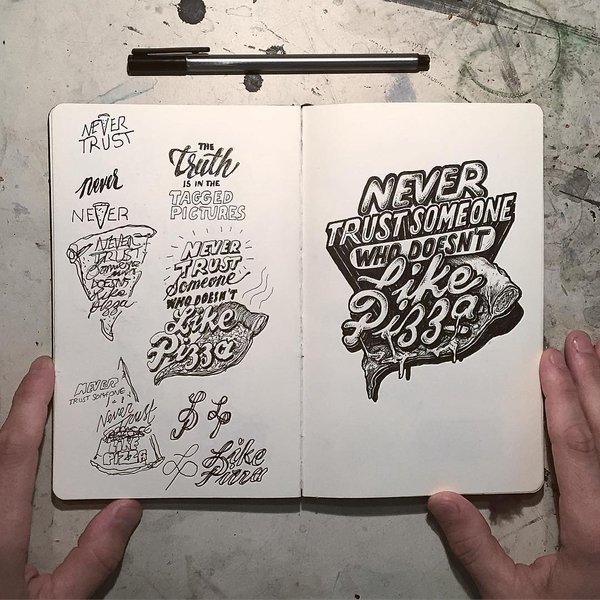 NEVER
TRUST
never
NEVER
NEVER
TRUST
Someone
WHO
DOESN'T
Like
pizza
NEVER
TRUST SOMEONE
Never
Trust
LIKE
PIZZA
THE
truth
IS IN THE
TAGGED
PICTURES
NEVER
TRUST
Someone
WHO DOESN'T
Like
Pizza
L
L
L
Like
Pizza
NEVER
TRUST SOMEONE
WHO DOESN'T
Like
Pizza